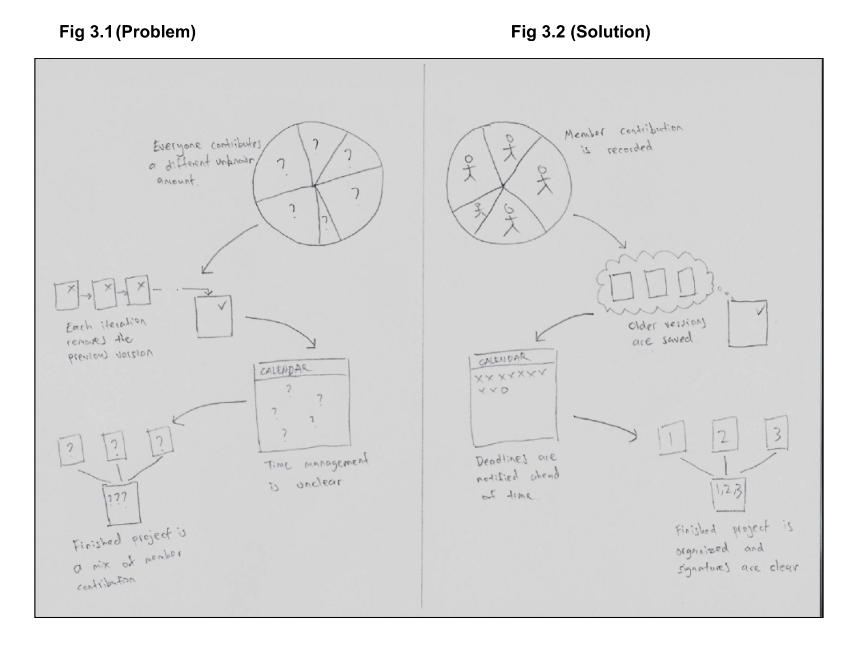 Fig 3.1(Problem)
Fig 3.2 (Solution)
Everyone contributes
a different unknown
amount.
?
?
?
?
?
?
x
x
x
✓
Each iteration
removes the
previous version
CALENDAR
?
?
?
?
?
Time management
is unclear
?
?
?
???
Finished project is
a mix of member
contribution
Member contribution
is recorded
✓
Older versions
are saved
CALENDAR
XXXXXXX
XXO
Deadlines are
notified ahead
of time
1
2
3
1,2,3
Finished project is
organized and
signatures are clear